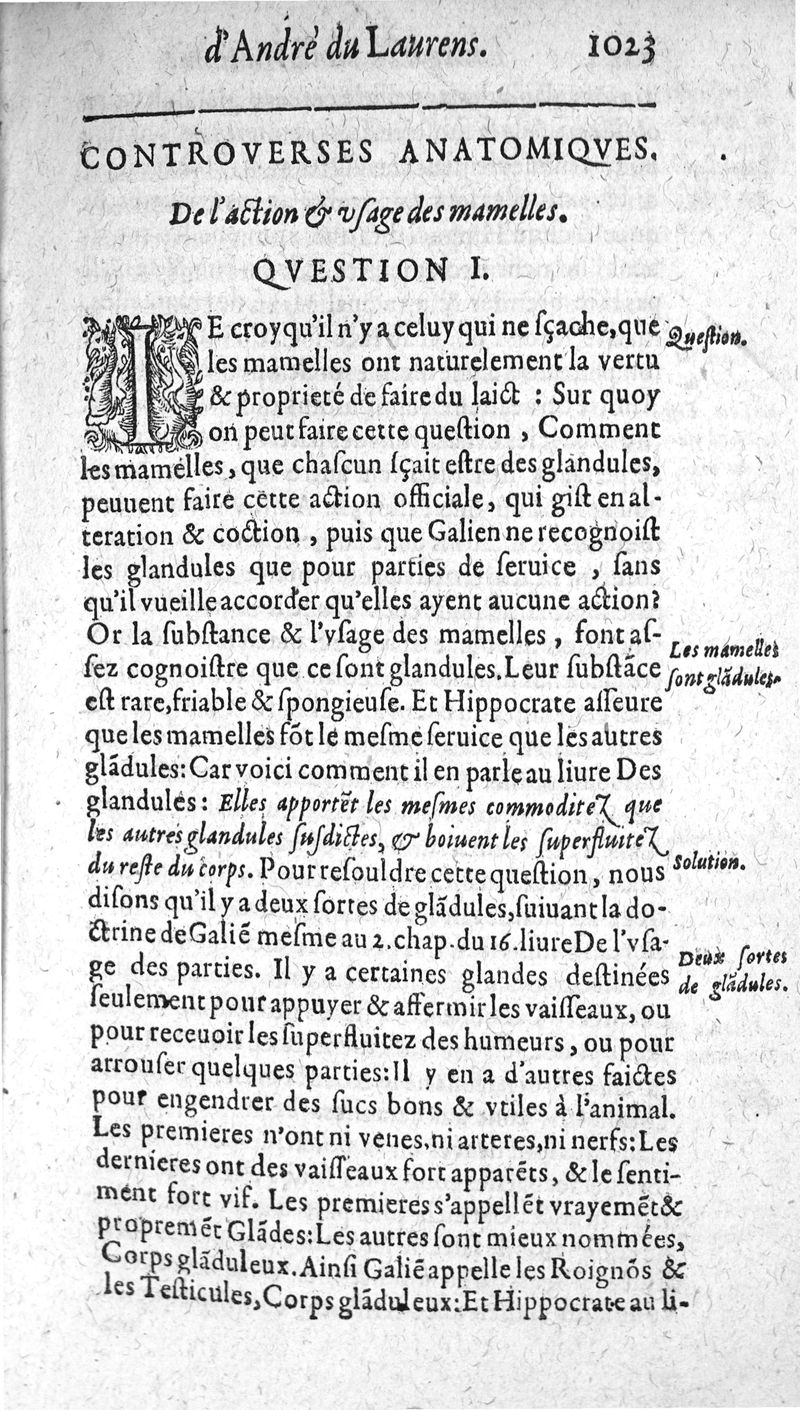 d'André du Laurens. 1023
CONTROVERSES ANATOMIQVES.
De l'action & vſage des mamelles.
QVESTION I.
IE croy qu'il n'y a celuy qui ne ſçache, que
Queſtion.
les mamelles ont naturelement la vertu
& proprieté de faire du laict : Sur quoy
on peut faire cette queſtion , Comment
les mamelles, que chaſcun ſçait eſtre des glandules,
peuuent faire cette action officiale, qui giſt en al-
teration & coction , puis que Galien ne recognoiſt
les glandules que pour parties de ſeruice , ſans
qu'il vueille accorder qu'elles ayent aucune action?
Or la ſubſtance & l'vſage des mamelles , font aſ-
Les mamelles
ſez cognoiſtre que ce ſont glandules. Leur ſubſtãce
ſont glãdules.
eſt rare, friable & ſpongieuſe. Et Hippocrate aſſeure
que les mamelles fõt le meſme ſeruice que les autres
glãdules: Car voici comment il en parle au liure Des
glandules: Elles apportẽt les meſmes commoditez que
les autres glandules ſuſdictes, & boiuent les ſuperfluitez
du reſte du corps. Pour reſouldre cette queſtion, nous
Solution.
diſons qu'il y a deux ſortes de glãdules, ſuiuant la do-
ctrine de Galiẽ meſme au 2. chap. du 16. liure De l'vſa-
Deux ſortes
ge des parties. Il y a certaines glandes deſtinées
de glãdules.
ſeulement pour appuyer & affermir les vaiſſeaux, ou
pour receuoir les ſuperfluitez des humeurs, ou pour
arrouſer quelques parties: Il y en a d'autres faictes
pour engendrer des ſucs bons & vtiles à l'animal.
Les premieres n'ont ni venes, ni arteres, ni nerfs: Les
dernieres ont des vaiſſeaux fort apparẽts, & le ſenti-
ment fort vif. Les premieres s'appellẽt vrayemẽt &
propremẽt Glãdes: Les autres ſont mieux nommées,
Corps glãduleux. Ainſi Galiẽ appelle les Roignõs &
les Teſticules, Corps glãduleux: Et Hippocrate au li-